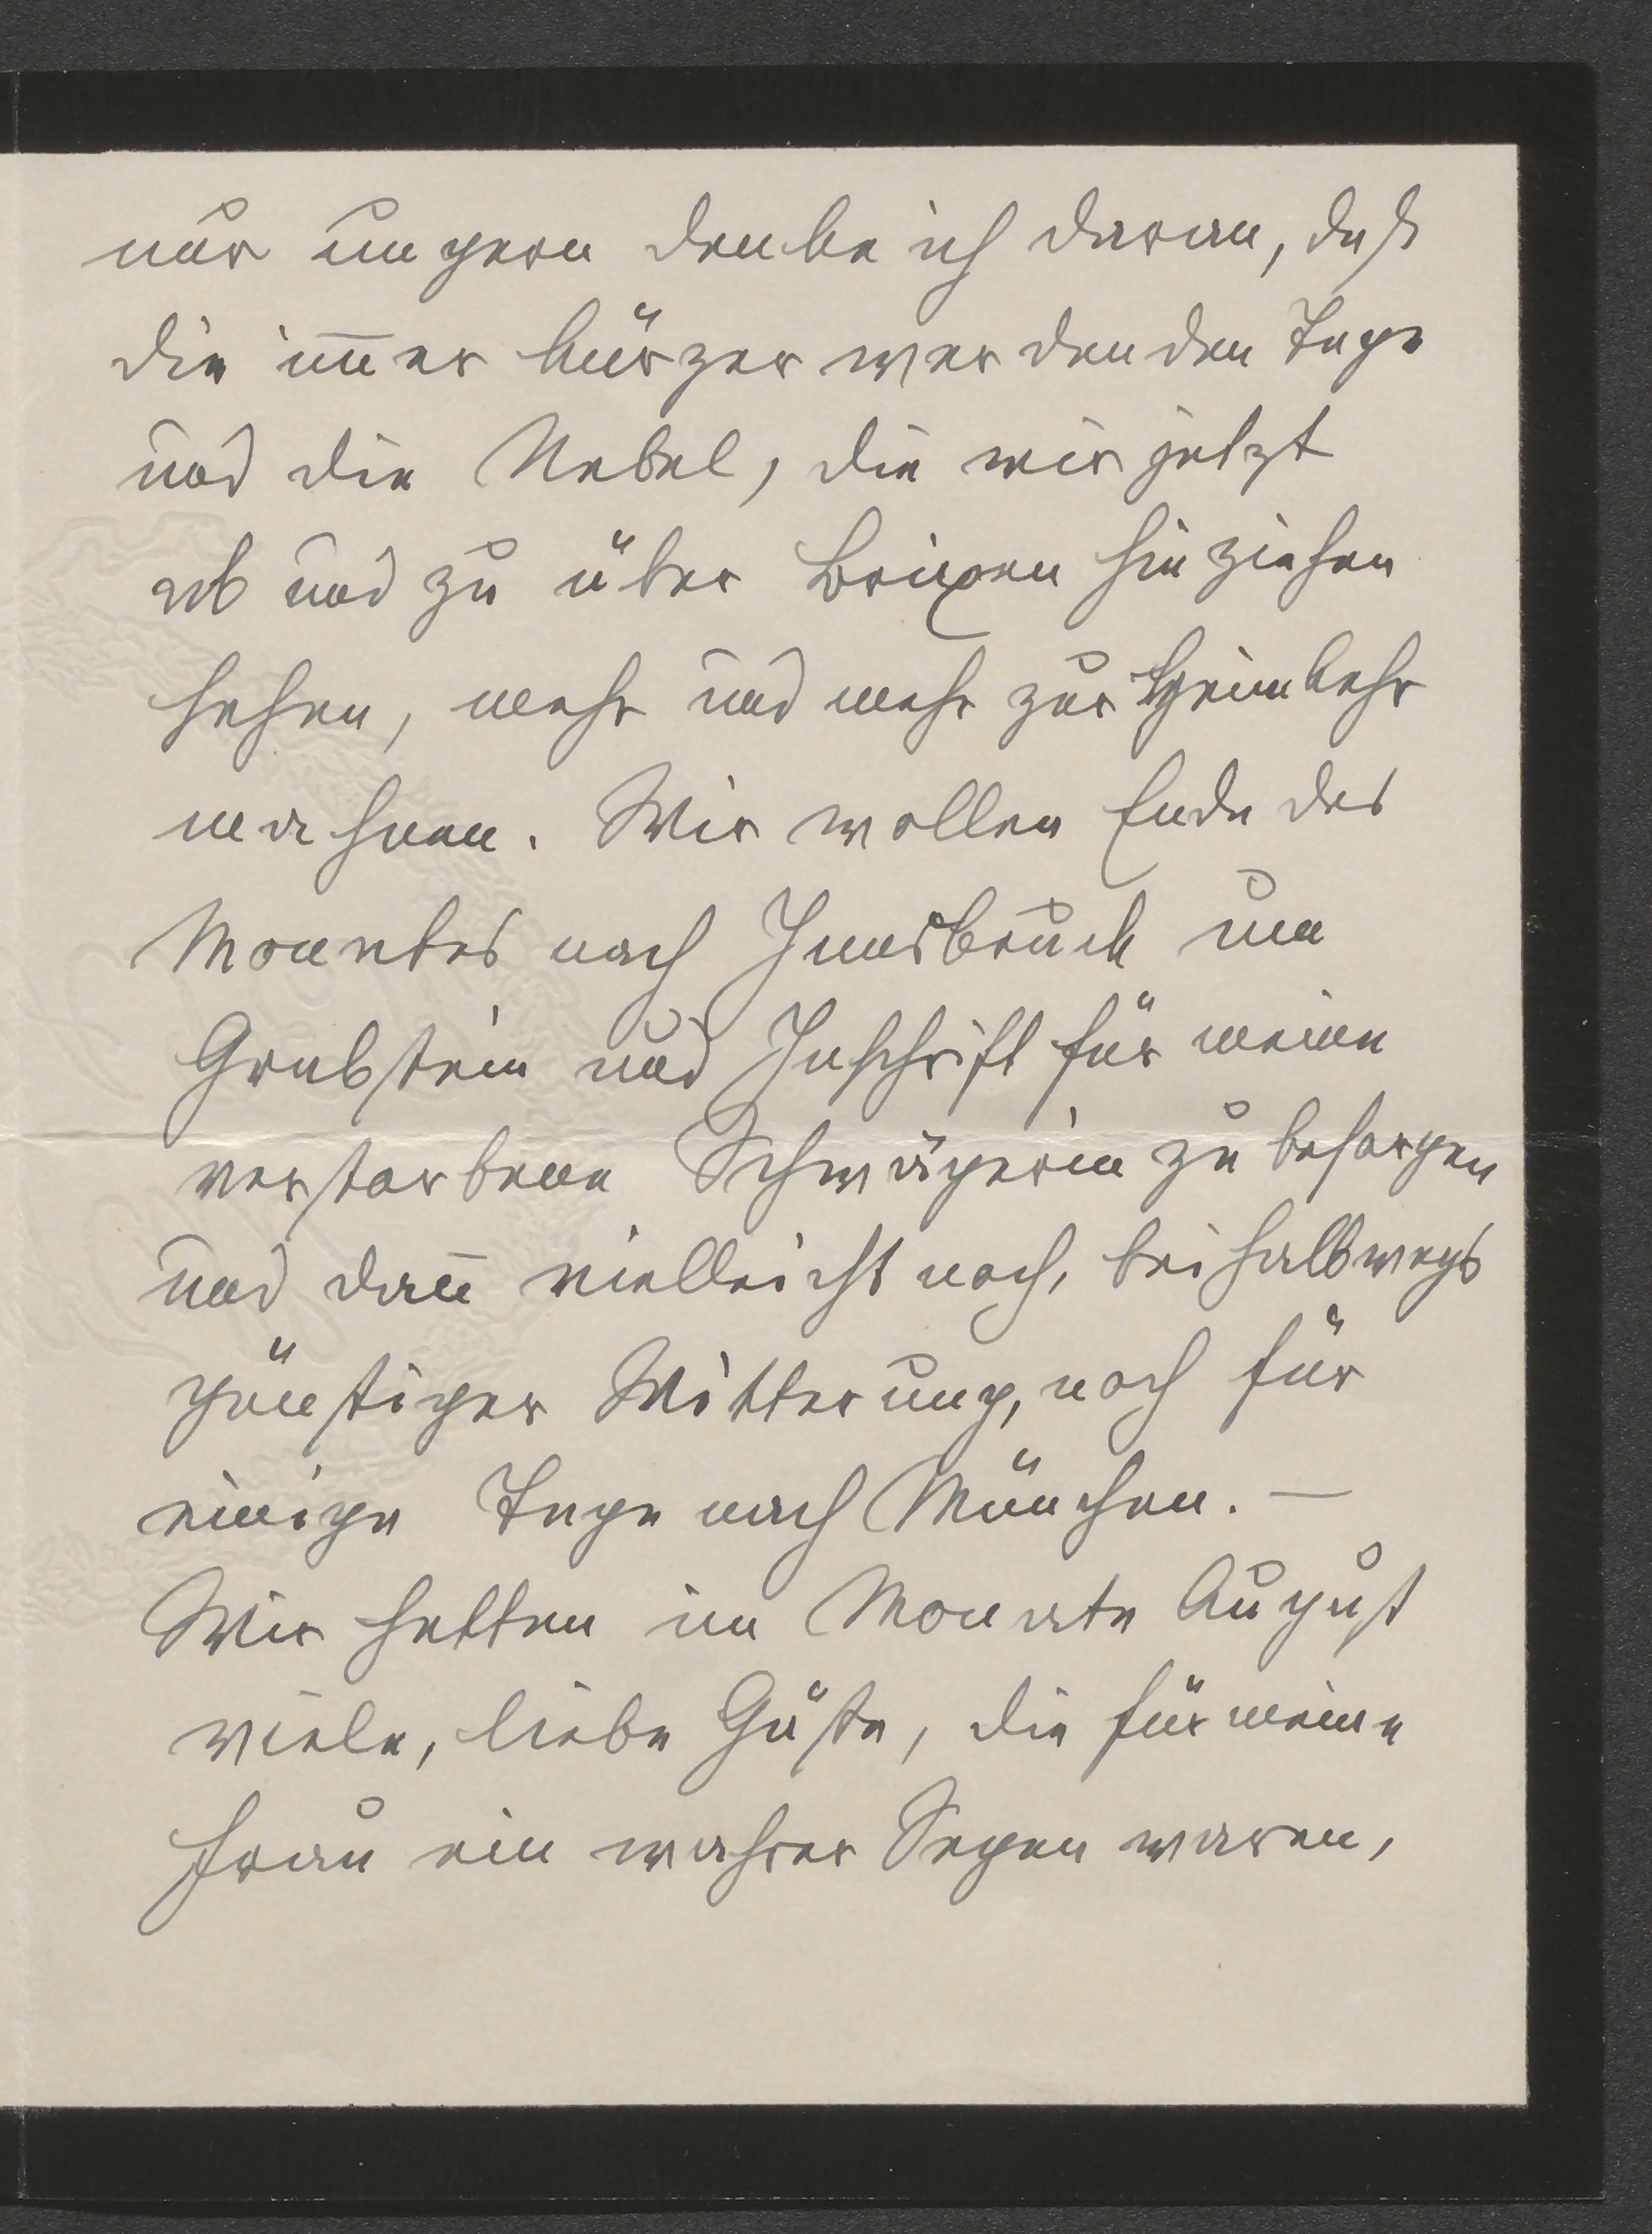 nur ungern denke ich daran, daß
die im̅er kürzer werdenden Tage
und die Nebel, die wir jetzt
ab und zu über Brixen hinziehen
sehen, mehr und mehr zur Heimkehr
mahnen. Wir wollen Ende des
Monates nach Innsbruck um
Grabstein und Inschrift für meine
verstorbene Schwägerin zu besorgen
und dan̅ vielleicht noch, bei halbwegs
günstiger Witterung, noch für
einige Tage nach München. —
Wir hatten im Monate August
viele, liebe Gäste, die für meine
Frau ein wahrer Segen waren,